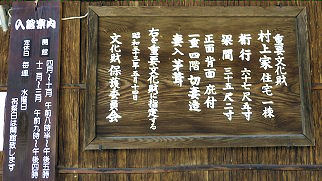 重要文化財
村上家住宅一棟
桁行 六十七尺五寸
梁間 三十五尺二寸
正面背面 庇付
一重四階 切妻造
妻入 茅葺
右を重要文化財に指定する
昭和三十三年 五月十四日
文化財保護委員会
入館案内
開館
四月〜十月 午前八時半〜午後五時
十一月〜三月 午前九時〜午後四時
定休日 毎週 水曜日
祝祭日は開館致します